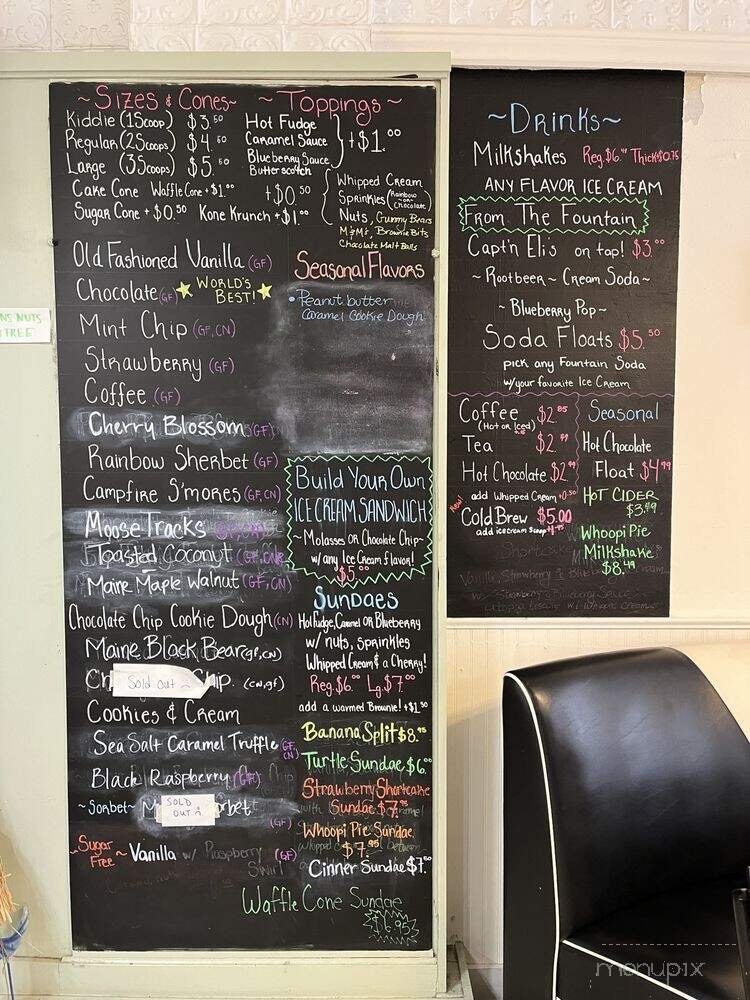 ~Sizes & Cones~
Kiddie (1 Scoop) $3.50
Regular (2 Scoops) $4.50
Large (3 Scoops) $5.50
Cake Cone Waffle Cone + $1.00
Sugar Cone + $0.50 Kone Krunch + $1.00
~Toppings~
Hot Fudge
Caramel Sauce
Blueberry Sauce
Butterscotch
+$1.00
+$0.50
Whipped Cream
Sprinkles (Rainbow -or- Chocolate)
Nuts, Gummy Bears
M&M's, Brownie Bits
Chocolate Malt Balls
Old Fashioned Vanilla (GF)
Chocolate (GF) WORLD'S BEST!
Mint Chip (GF,CN)
Strawberry (GF)
Coffee (GF)
Cherry Blossom (GF)
Rainbow Sherbet (GF)
Campfire S'mores (GF,CN)
Moose Tracks
Toasted Coconut (GF,CN)
Maine Maple Walnut (GF,CN)
Chocolate Chip Cookie Dough (CN)
Maine Black Bear (GF,CN)
Sold out (CN,gf)
Cookies & Cream
Sea Salt Caramel Truffle (GF,CN)
Black Raspberry (GF)
~Sorbet~ SOLD OUT
(GF)
~Sugar Free~ Vanilla w/ Raspberry Swirl (GF)
Seasonal Flavors
• Peanut butter
Caramel Cookie Dough
Build Your Own
ICE CREAM SANDWICH
~Molasses OR Chocolate Chip~
w/ any Ice Cream flavor!
$5.00
Sundaes
Hot fudge, Caramel OR Blueberry
w/ nuts, sprinkles
Whipped Cream & a Cherry!
Reg. $6.00 Lg. $7.00
add a warmed Brownie! +$1.50
Banana Split $8.95
Turtle Sundae $6.00
Strawberry Shortcake
Sundae $7.95
Whoopi Pie Sundae
$7.95
Cinner Sundae $7.50
Waffle Cone Sundae
$6.95
~Drinks~
Milkshakes Reg. $6.00 Thick+$0.75
ANY FLAVOR ICE CREAM
From The Fountain
Capt'n Eli's on tap! $3.00
~Rootbeer~Cream Soda~
~Blueberry Pop~
Soda Floats $5.50
pick any Fountain Soda
w/your favorite Ice Cream
Coffee $2.85
(Hot or Iced)
Tea $2.99
Hot Chocolate $2.99
add Whipped Cream +0.50
New!
Cold Brew $5.00
add ice cream scoop +$1.95
Seasonal
Hot Chocolate
Float $4.99
HOT CIDER
$3.49
Whoopi Pie
Milkshake
$8.49
NS NUTS
FREE
menupix